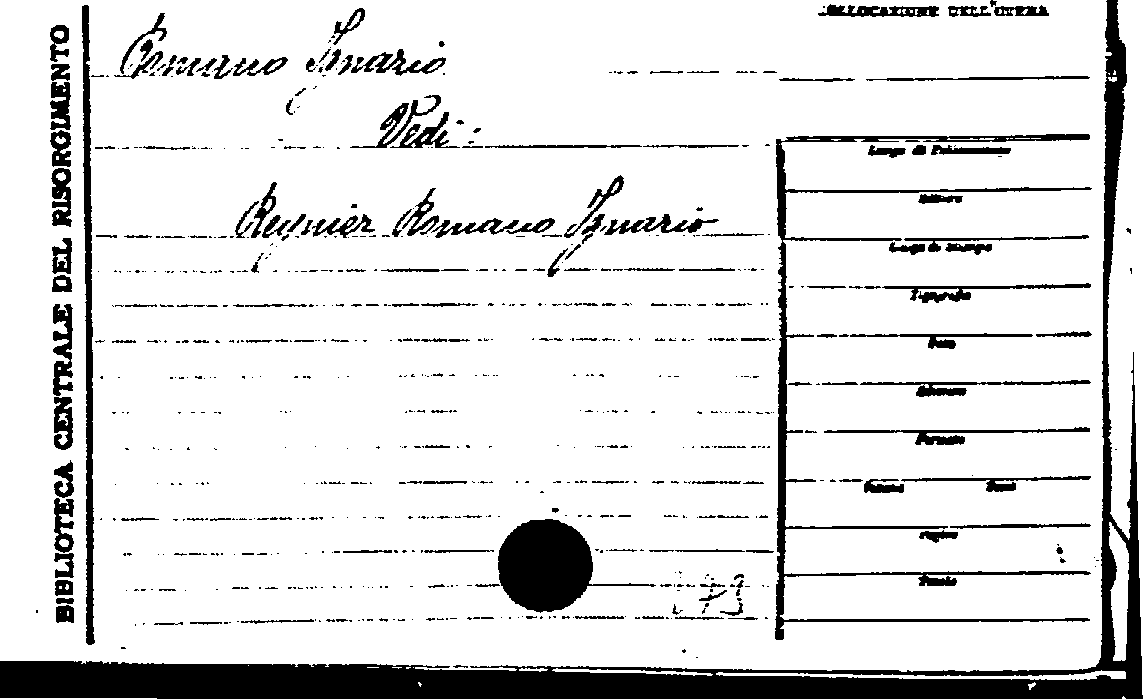 BIBLIOTECA CENTRALE DEL RISORGIMENTO
COLLOCAZIONE DELL'OPERA
Romano Ignazio
Vedi:
Reynier Romano Ignazio
Luogo di Pubblicazione
Editore
Luogo di stampa
Tipografia
Data
Edizione
Formato
Volumi Tomi
Pagine
Tavole